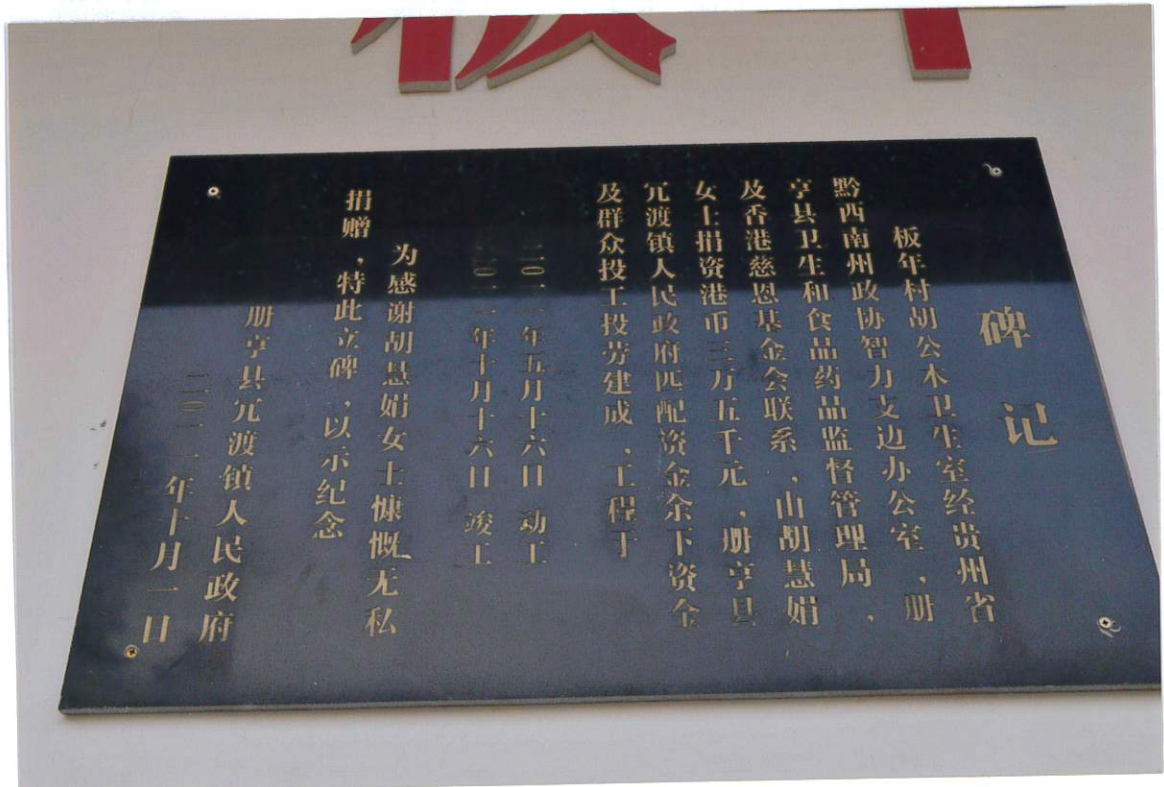 碑记
板年村胡公木卫生室经贵州省
黔西南州政协智力支边办公室，册
亨县卫生和食品药品监督管理局，
及香港慈恩基金会联系，由胡慧娟
女士捐资港币三万五千元，册亨县
冗渡镇人民政府匹配资金余下资金
及群众投工投劳建成，工程于
二〇一一年五月十六日 动工
二〇一一年十月十六日 竣工
为感谢胡慧娟女士慷慨无私
捐赠，特此立碑，以示纪念
册亨县冗渡镇人民政府
二〇一一年十月一日